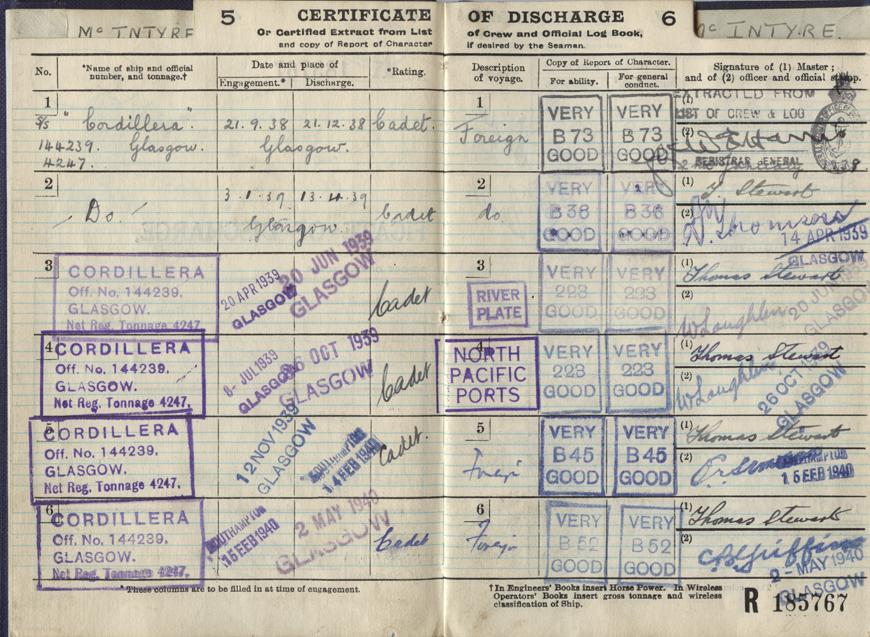 Mc INTYRE
5 CERTIFICATE
Or Certified Extract from List
and copy of Report of Character
OF DISCHARGE 6
of Crew and Official Log Book,
if desired by the Seaman.
Mc INTYRE.
No.
*Name of ship and official number, and tonnage.†
Date and place of
Engagement.* Discharge.
*Rating.
Description of voyage.
Copy of Report of Character.
For ability. For general conduct.
Signature of (1) Master; and of (2) officer and official stamp.
1
S/S "Cordillera".
144239. Glasgow.
4247.
21.9.38 21.12.38
Glasgow.
Cadet.
1
Foreign
VERY B73 GOOD
VERY B73 GOOD
(1)
EXTRACTED FROM
LIST OF CREW & LOG
(2)
REGISTRAR GENERAL
2
Do.
3.1.39 13.4.39
Glasgow
Cadet
2
do.
VERY B36 GOOD
VERY B36 GOOD
(1) T. Stewart
(2) Thomson
14 APR 1939
GLASGOW
3
CORDILLERA
Off. No. 144239.
GLASGOW.
Net Reg. Tonnage 4247.
20 APR 1939
GLASGOW
20 JUN 1939
GLASGOW
Cadet
3
RIVER
PLATE
VERY 223 GOOD
VERY 223 GOOD
(1) Thomas Stewart
(2) W Loughlen
20 JUN 1939
GLASGOW
4
CORDILLERA
Off. No. 144239.
GLASGOW.
Net Reg. Tonnage 4247.
8-JUL 1939
GLASGOW
26 OCT 1939
GLASGOW
Cadet
4
NORTH
PACIFIC
PORTS
VERY 223 GOOD
VERY 223 GOOD
(1) Thomas Stewart
(2) W Loughlen
26 OCT 1939
GLASGOW
5
CORDILLERA
Off. No. 144239.
GLASGOW.
Net Reg. Tonnage 4247.
12 NOV 1939
GLASGOW
SOUTHAMPTON
14 FEB 1940
Cadet.
5
Foreign
VERY B45 GOOD
VERY B45 GOOD
(1) Thomas Stewart
(2)
SOUTHAMPTON
15 FEB 1940
6
CORDILLERA
Off. No. 144239.
GLASGOW.
Net Reg. Tonnage 4247.
SOUTHAMPTON
15 FEB 1940
2 MAY 1940
GLASGOW
Cadet
6
Foreign
VERY B52 GOOD
VERY B52 GOOD
(1) Thomas Stewart
(2) Griffin
2-MAY 1940
GLASGOW
*These columns are to be filled in at time of engagement.
†In Engineers' Books insert Horse Power. In Wireless
Operators' Books insert gross tonnage and wireless
classification of Ship.
R 185767